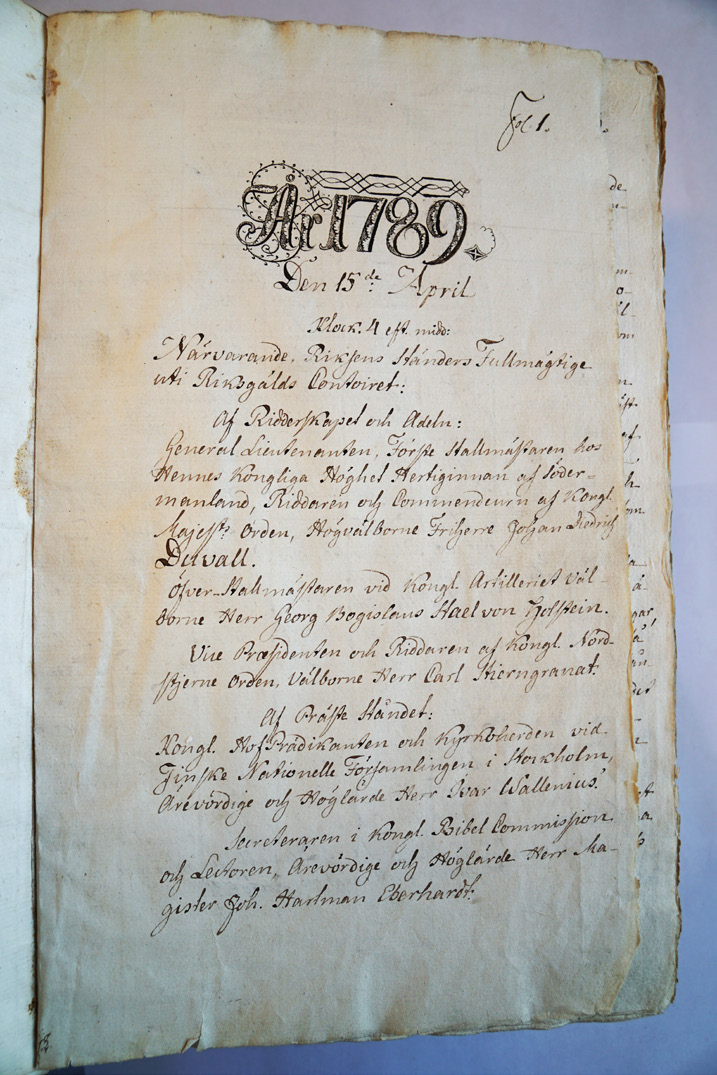 Fol. 1.
År 1789.
Den 15de April
Klock. 4 eft. midd:
Närvarande, Riksens Ständers Fullmägtige
uti Riksgälds Contoiret:
Af Ridderskapet och Adeln:
General Lieutenanten, Förste Stallmästaren hos
Hennes Kongliga Höghet Hertiginnan af Söder-
manland, Riddaren och Commendeurn af Kongl.
Majestts Orden, Högvälborne Friherre Johan Fredrich
Duvall.
Öfver-Stallmästaren vid Kongl. Artilleriet Väl-
borne Herr Georg Bogislaus Stael von Holstein.
Vice Præsidenten och Riddaren af Kongl. Nord-
stjerne Orden, Välborne Herr Carl Stierngranat.
Af Präste Ståndet:
Kongl. HofPrädikanten och Kyrkoherden vid
Finske Nationelle Församlingen i Stockholm,
Ärevördige och Höglärde Herr Ivar Wallenius.
Secreteraren i Kongl. Bibel Commission
och Lectoren, Ärevördige och Höglärde Herr Ma-
gister Joh. Hartman Eberhardt.